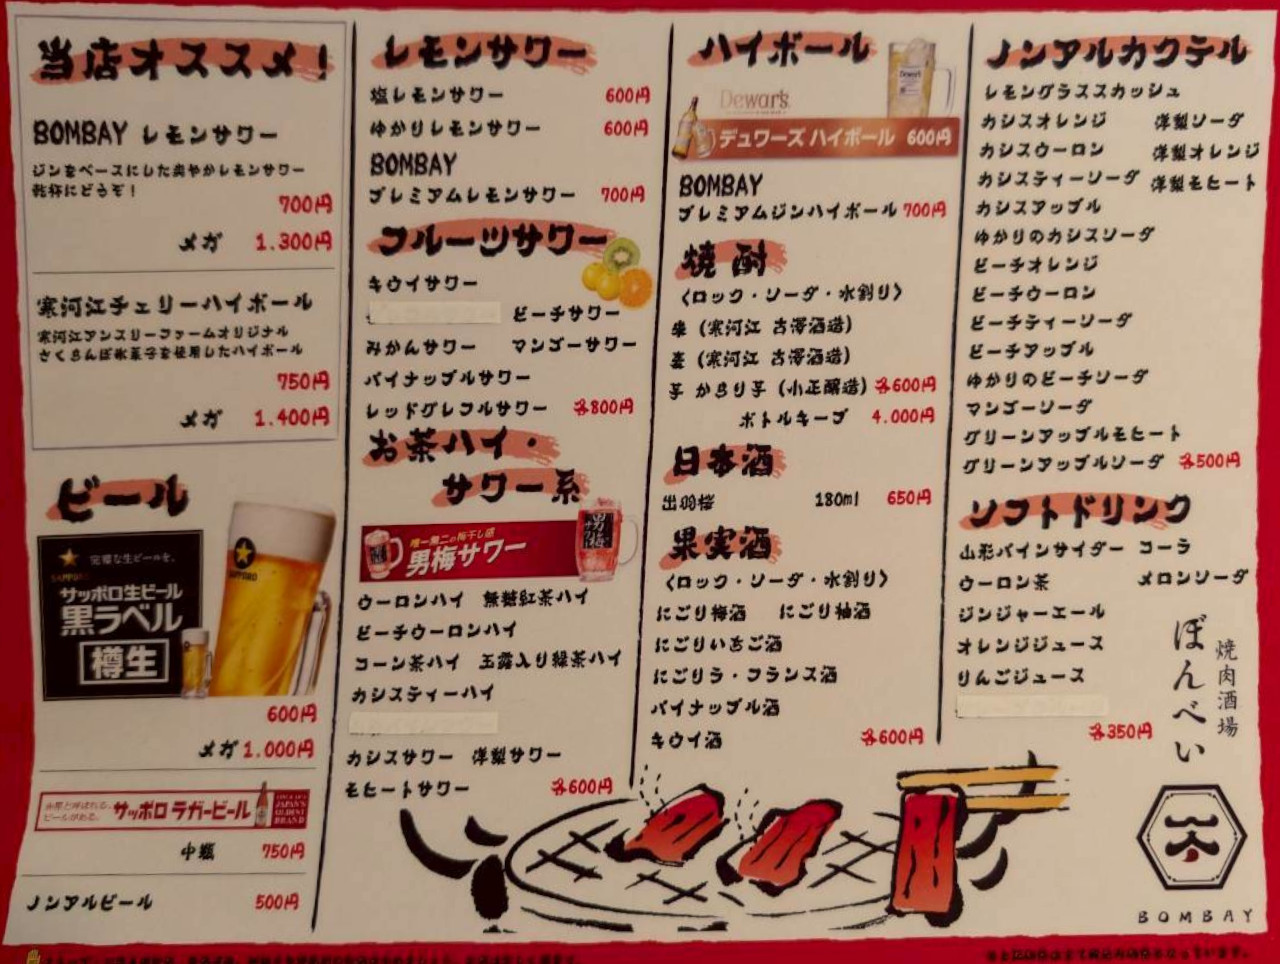 当店オススメ！
BOMBAY レモンサワー
ジンをベースにした爽やかレモンサワー
乾杯にどうぞ！
700円
メガ 1.300円
寒河江チェリーハイボール
寒河江アンスリーファームオリジナル
さくらんぼ氷菓子を使用したハイボール
750円
メガ 1.400円
ビール
完璧な生ビールを。
SAPPORO
サッポロ生ビール
黒ラベル
樽生
SAPPORO
600円
メガ 1.000円
赤星と呼ばれる、
ビールがある。
サッポロ ラガービール
JAPAN'S
OLDEST
BRAND
中瓶 750円
ノンアルビール 500円
レモンサワー
塩レモンサワー 600円
ゆかりレモンサワー 600円
BOMBAY
プレミアムレモンサワー 700円
フルーツサワー
キウイサワー
ピーチサワー
みかんサワー マンゴーサワー
パイナップルサワー
レッドグレフルサワー 各800円
お茶ハイ・
サワー系
唯一無二の梅干し感
男梅サワー
ウーロンハイ 無糖紅茶ハイ
ピーチウーロンハイ
コーン茶ハイ 玉露入り緑茶ハイ
カシスティーハイ
カシスサワー 洋梨サワー
モヒートサワー 各600円
ハイボール
Dewar's
デュワーズ ハイボール 600円
BOMBAY
プレミアムジンハイボール 700円
焼酎
〈ロック・ソーダ・水割り〉
米（寒河江 古澤酒造）
麦（寒河江 古澤酒造）
芋 からり芋（小正醸造）各600円
ボトルキープ 4.000円
日本酒
出羽桜 180ml 650円
果実酒
〈ロック・ソーダ・水割り〉
にごり梅酒 にごり柚酒
にごりいちご酒
にごりラ・フランス酒
パイナップル酒
キウイ酒 各600円
ノンアルカクテル
レモングラススカッシュ
カシスオレンジ 洋梨ソーダ
カシスウーロン 洋梨オレンジ
カシスティーソーダ 洋梨モヒート
カシスアップル
ゆかりのカシスソーダ
ピーチオレンジ
ピーチウーロン
ピーチティーソーダ
ピーチアップル
ゆかりのピーチソーダ
マンゴーソーダ
グリーンアップルモヒート
グリーンアップルソーダ 各500円
ソフトドリンク
山形パインサイダー コーラ
ウーロン茶 メロンソーダ
ジンジャーエール
オレンジジュース
りんごジュース
各350円
焼肉酒場
ぼんべい
BOMBAY